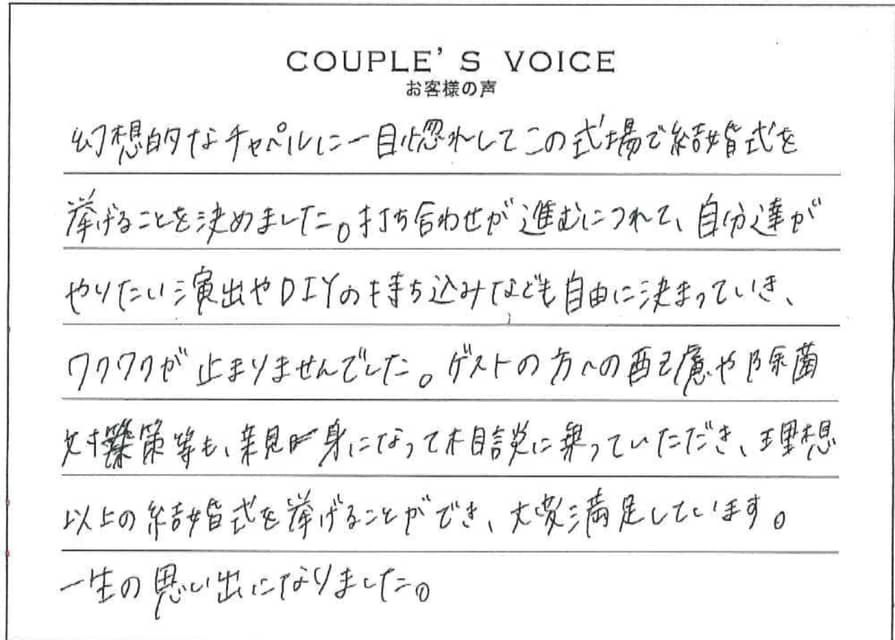 COUPLE'S VOICE
お客様の声
幻想的なチャペルに一目惚れしてこの式場で結婚式を
挙げることを決めました。打ち合わせが進むにつれて、自分達が
やりたい演出やDIYの持ち込みなども自由に決まっていき、
ワクワクが止まりませんでした。ゲストの方への配慮や除菌
対策等も、親身になって相談に乗っていただき、理想
以上の結婚式を挙げることができ、大変満足しています。
一生の思い出になりました。